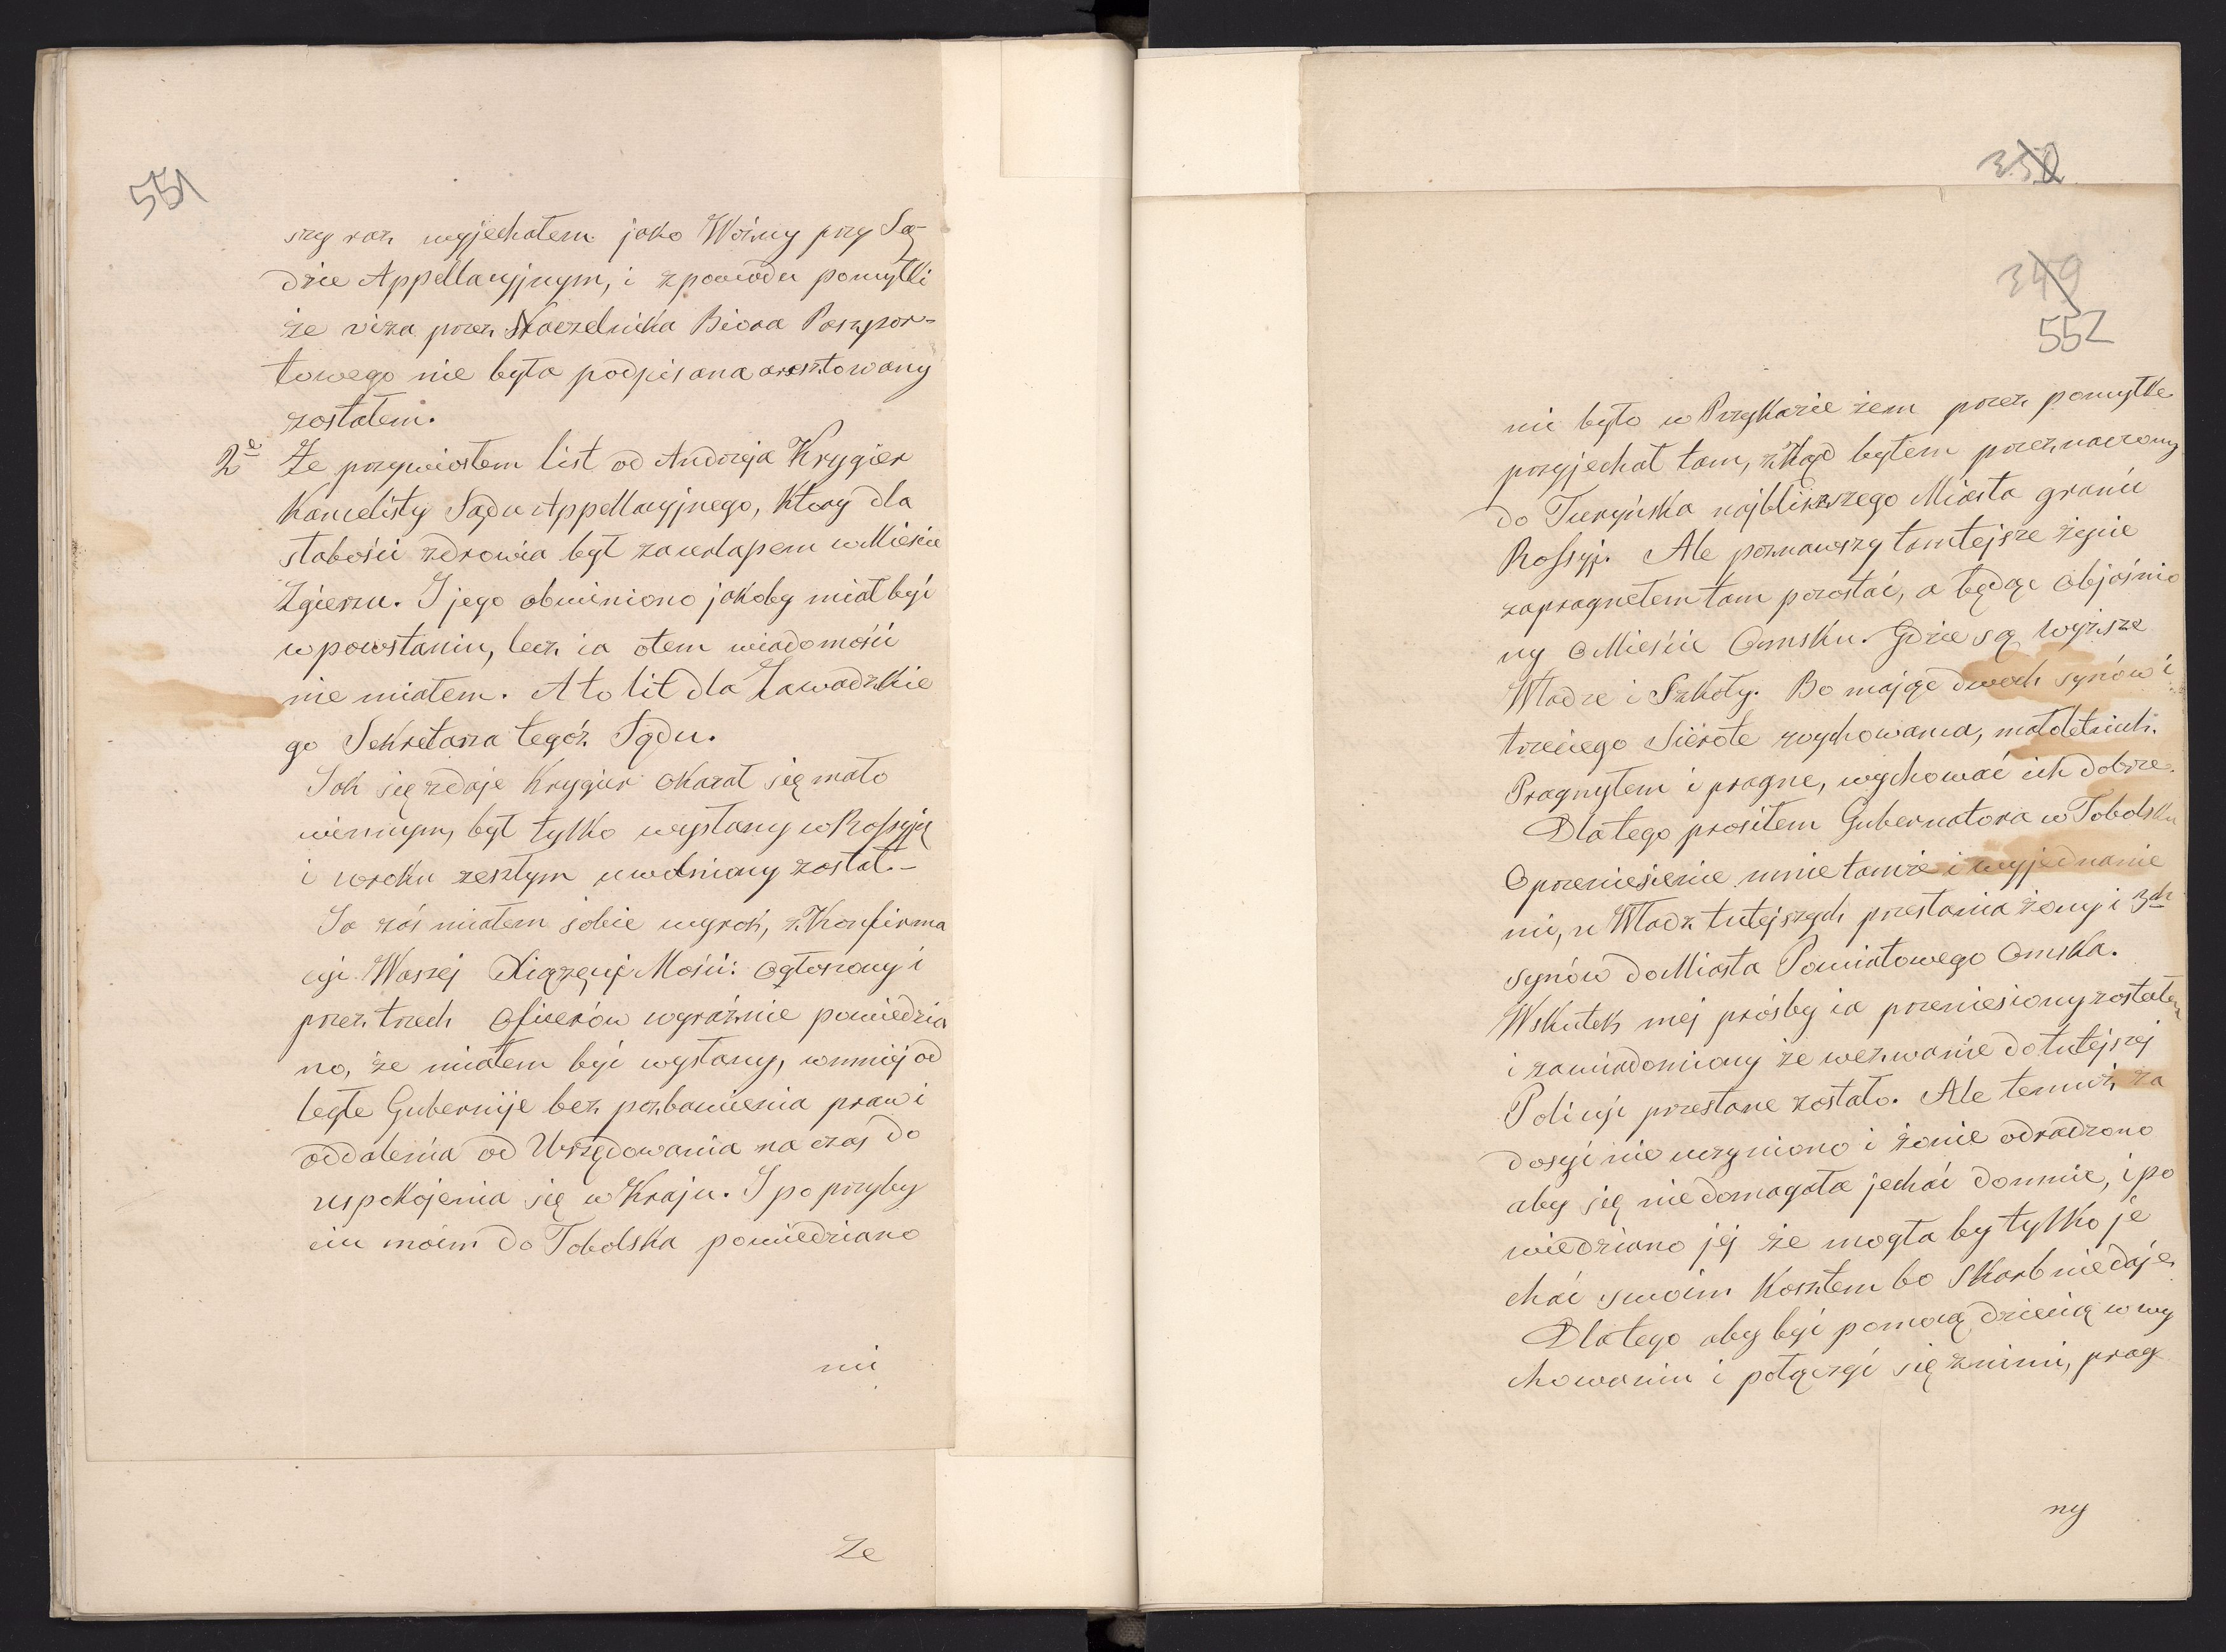 551
szy raz wyjechałem jako Woźny przy Są-
dzie Appellacyjnym, i z powodu pomyłki
że viza przez Naczelnika Biora Paszpor-
towego nie była podpisana aresztowany
zostałem.
2e Że przywiozłem list od Andrzeja Krygier
Kancelisty Sądu Appellacyjnego, który dla
słabości zdrowia był za urlopem w Mieście
Zgierzu. I jego obwiniono jakoby miał być
w powstaniu, lecz ia otem wiadomości
nie miałem. A to lit dla Zawadzkie
go Sekretarza tegóż Sądu.
Jak się zdaje Krygier okazał się mało
winnym, był tylko wysłany w Rossyją
i wroku zeszłym uwolniony został.-
Ja zaś miałem sobie wyrok, z Konfirma
cyi Waszej Xiążęcej Mości: ogłoszony i
przez trzech oficerów wyraźnie powiedzia
no, że miałem być wysłany, w mniej od
ległe Gubernije bez pozbawienia praw i
oddalenia od Urzędowania na czas do
uspokojenia się w Kraju. I po przyby
ciu moim do Tobolska powiedziano
ni
Że
350
349
552
nie było w Przykazie żem przez pomyłke
przyjechał tam, zkąd byłem przeznaczony
do Turyńska najbliższego Miasta granic
Rossyj. Ale poznawszy tamtejsze życie
zapragnełem tam pozostać, a będąc Objaśnio
ny o Mieście Omsku. Gdzie są wyższe
Władze i Szkoły. Bo mając dwoch synów i
trzeciego Sierote wychowania, małoletnich.
Pragnyłem i pragne, wychować ich dobrze.
Dlatego prosiłem Gubernatora w Tobolsku
O przeniesienie mnie tamże i wyjednanie
mi, u Władz tutejszych przesłania żony i 3ch
synów do Miasta Powiatowego Omska.
Wskutek mej prośby ia przeniesiony zostałem
i zawiadomiony że wezwanie do tutejszej
Policyi przesłane zostało. Ale temuż za
dosyć nie uczyniono i żonie odradzono
aby się nie domagała jechać do mnie, i po
wiedziano jej że mogła by tylko je
chać swoim Kosztem bo Skarb nie daje.
Dlatego aby być pomocą dziecią w wy
chowaniu i połączyć się z nimi, prag
ny